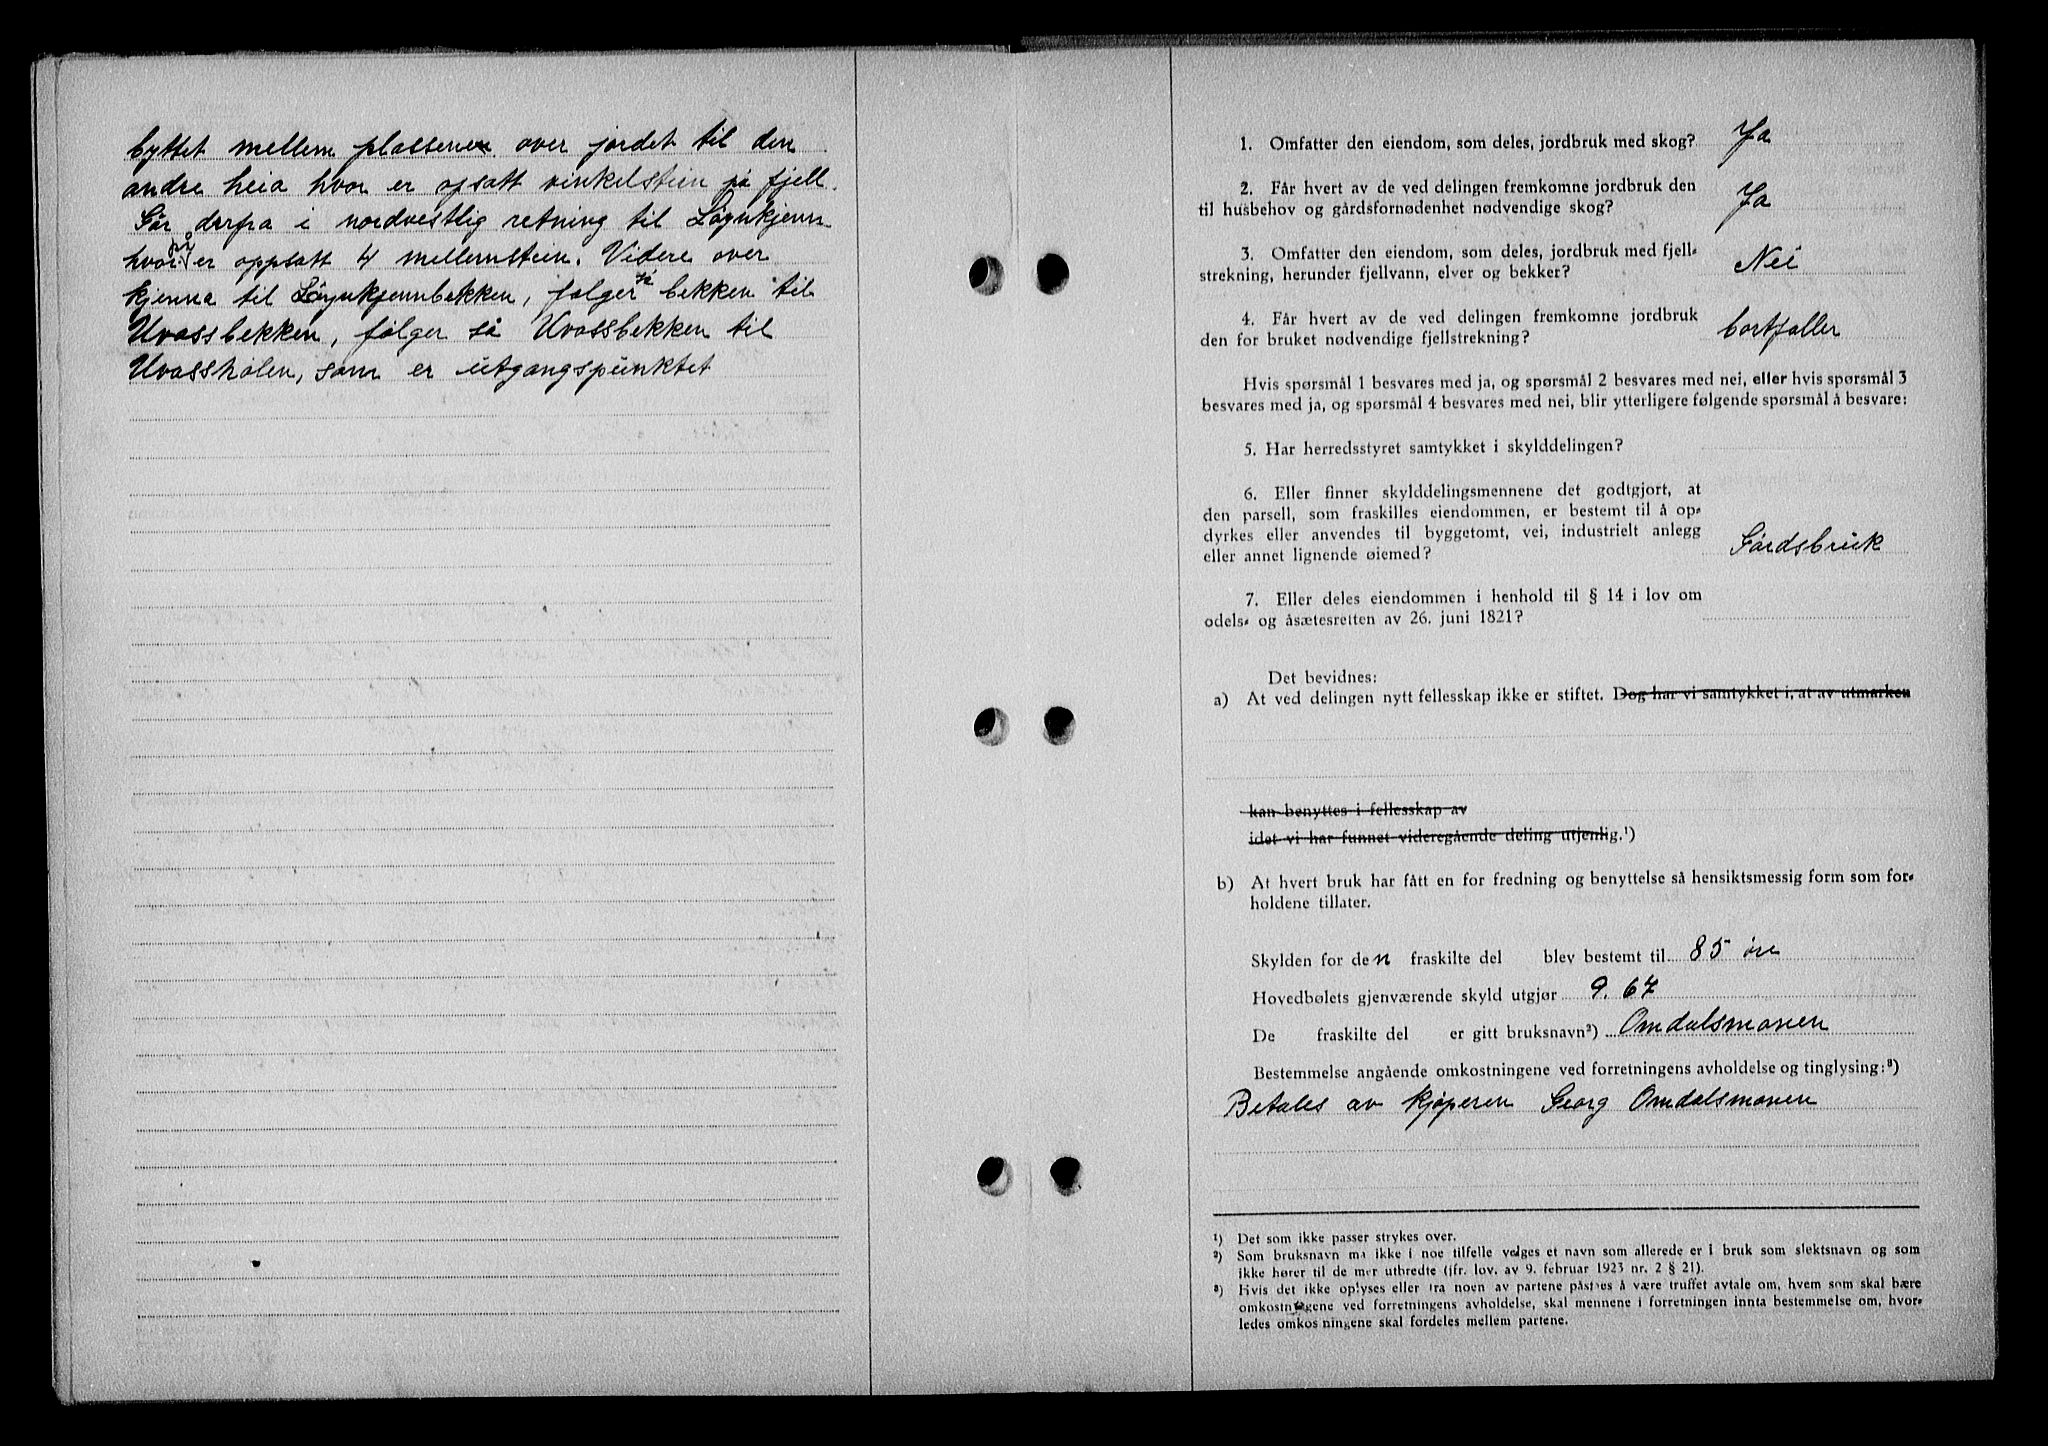 byttet mellem plassene over jordet til den
andre heia hvor er opsatt vinkelstein på fjell.
Går derfra i nordvestlig retning til Løynkjenn
hvor på er oppsatt 4 mellemstein. Videre over
kjenna til Løynkjennbekken, følger så bekken til
Uvassbekken, følger så Uvassbekken til
Uvasshølen, som er utgangspunktet
1. Omfatter den eiendom, som deles, jordbruk med skog? Ja
2. Får hvert av de ved delingen fremkomne jordbruk den
til husbehov og gårdsfornødenhet nødvendige skog? Ja
3. Omfatter den eiendom, som deles, jordbruk med fjell-
strekning, herunder fjellvann, elver og bekker? Nei
4. Får hvert av de ved delingen fremkomne jordbruk
den for bruket nødvendige fjellstrekning? bortfaller
Hvis spørsmål 1 besvares med ja, og spørsmål 2 besvares med nei, eller hvis spørsmål 3
besvares med ja, og spørsmål 4 besvares med nei, blir ytterligere følgende spørsmål å besvare:
5. Har herredsstyret samtykket i skylddelingen?
6. Eller finner skylddelingsmennene det godtgjort, at
den parsell, som fraskilles eiendommen, er bestemt til å op-
dyrkes eller anvendes til byggetomt, vei, industrielt anlegg
eller annet lignende øiemed? Gårdsbruk
7. Eller deles eiendommen i henhold til § 14 i lov om
odels- og åsætesretten av 26. juni 1821?
Det bevidnes:
a) At ved delingen nytt fellesskap ikke er stiftet. Dog har vi samtykket i, at av utmarken
kan benyttes i fellesskap av
idet vi har funnet videregående deling utjenlig.¹)
b) At hvert bruk har fått en for fredning og benyttelse så hensiktsmessig form som for-
holdene tillater.
Skylden for den fraskilte del blev bestemt til 85 øre
Hovedbølets gjenværende skyld utgjør 9.67
De fraskilte del er gitt bruksnavn²) Omdalsmonen
Bestemmelse angående omkostningene ved forretningens avholdelse og tinglysing:³)
Betales av kjøperen Georg Omdalsmonen
¹) Det som ikke passer strykes over.
²) Som bruksnavn må ikke i noe tilfelle velges et navn som allerede er i bruk som slektsnavn og som
ikke hører til de mer utbredte (jfr. lov. av 9. februar 1923 nr. 2 § 21).
³) Hvis det ikke oplyses eller fra noen av partene påståes å være truffet avtale om, hvem som skal bære
omkostningene ved forretningens avholdelse, skal mennene i forretningen innta bestemmelse om, hvor-
ledes omkostningene skal fordeles mellem partene.